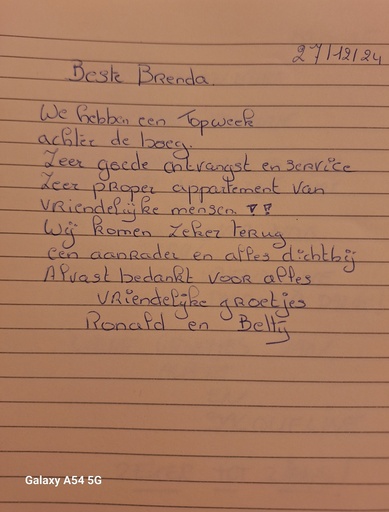 27/12/24
Beste Brenda.
We hebben een Topweek
achter de boeg.
Zeer goede ontvangst en service
Zeer proper appartement van
vriendelijke mensen
Wij komen zeker terug
een aanrader en alles dichtbij
Alvast bedankt voor alles
vriendelijke groetjes
Ronald en Betty
Galaxy A54 5G